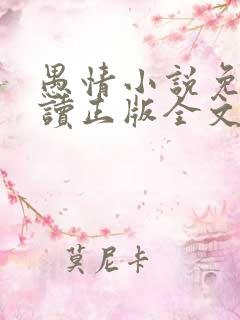 愚情小説免
讀正版全文
莫尼卡